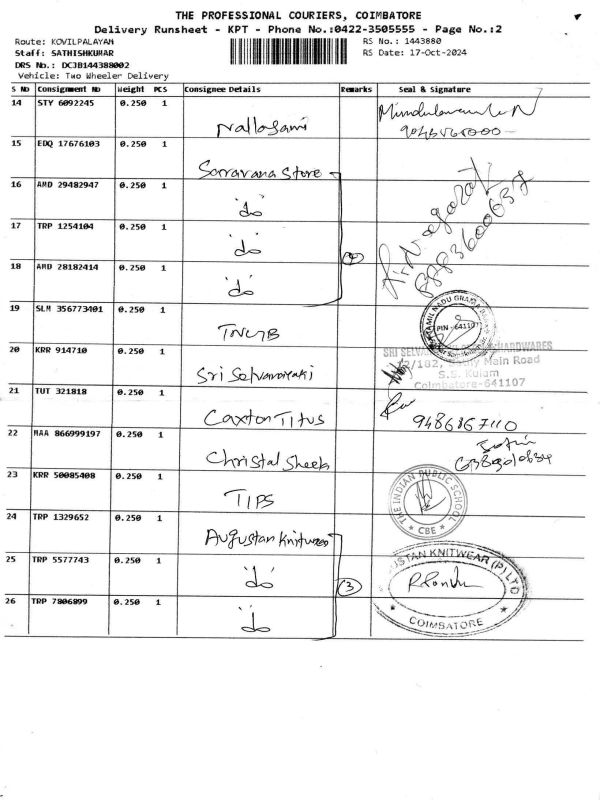 THE PROFESSIONAL COURIERS, COIMBATORE
Delivery Runsheet - KPT - Phone No.:0422-3505555 - Page No.:2
Route: KOVILPALAYAM
Staff: SATHISHKUMAR
DRS No.: DCJB144388002
Vehicle: Two Wheeler Delivery
RS No.: 1443880
RS Date: 17-Oct-2024
S No Consignment No Weight PCS Consignee Details Remarks Seal & Signature
14 STY 6092245 0.250 1 Nallasami
15 EDQ 17676103 0.250 1 Sarravana Store
16 AMD 29482947 0.250 1 "do"
17 TRP 1254104 0.250 1 "do"
18 AMD 28182414 0.250 1 "do"
19 SLM 356773401 0.250 1 TNGB
TAMIL NADU GRAMA BANK
PIN - 641107
20 KRR 914710 0.250 1 Sri Selvanayaki
SRI SELVANAYAKI HARDWARES
Main Road
S.S. Kulam
Coimbatore-641107
21 TUT 321818 0.250 1 Caxton Titus 9486867110
22 MAA 866999197 0.250 1 Christal Sheela
23 KRR 50085408 0.250 1 TIPS
THE INDIAN PUBLIC SCHOOL
* CBE *
24 TRP 1329652 0.250 1 Augustan Knitwear
25 TRP 5577743 0.250 1 "do" 3
26 TRP 7806899 0.250 1 "do"
AUGUSTAN KNITWEAR (P) LTD
COIMBATORE